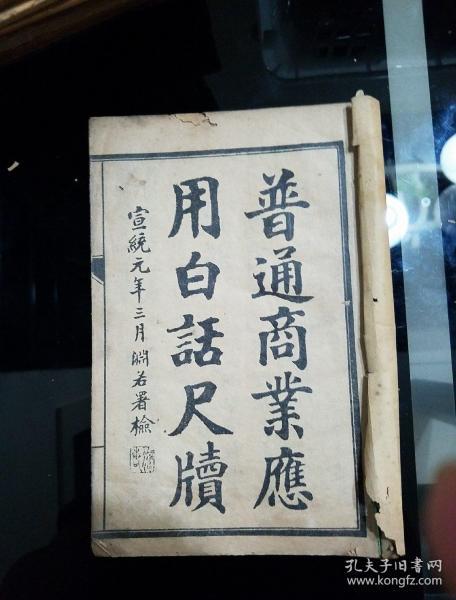 普通商業應
用白話尺牘
宣統元年三月淵若署檢
孔夫子旧书网
www.kongfz.com